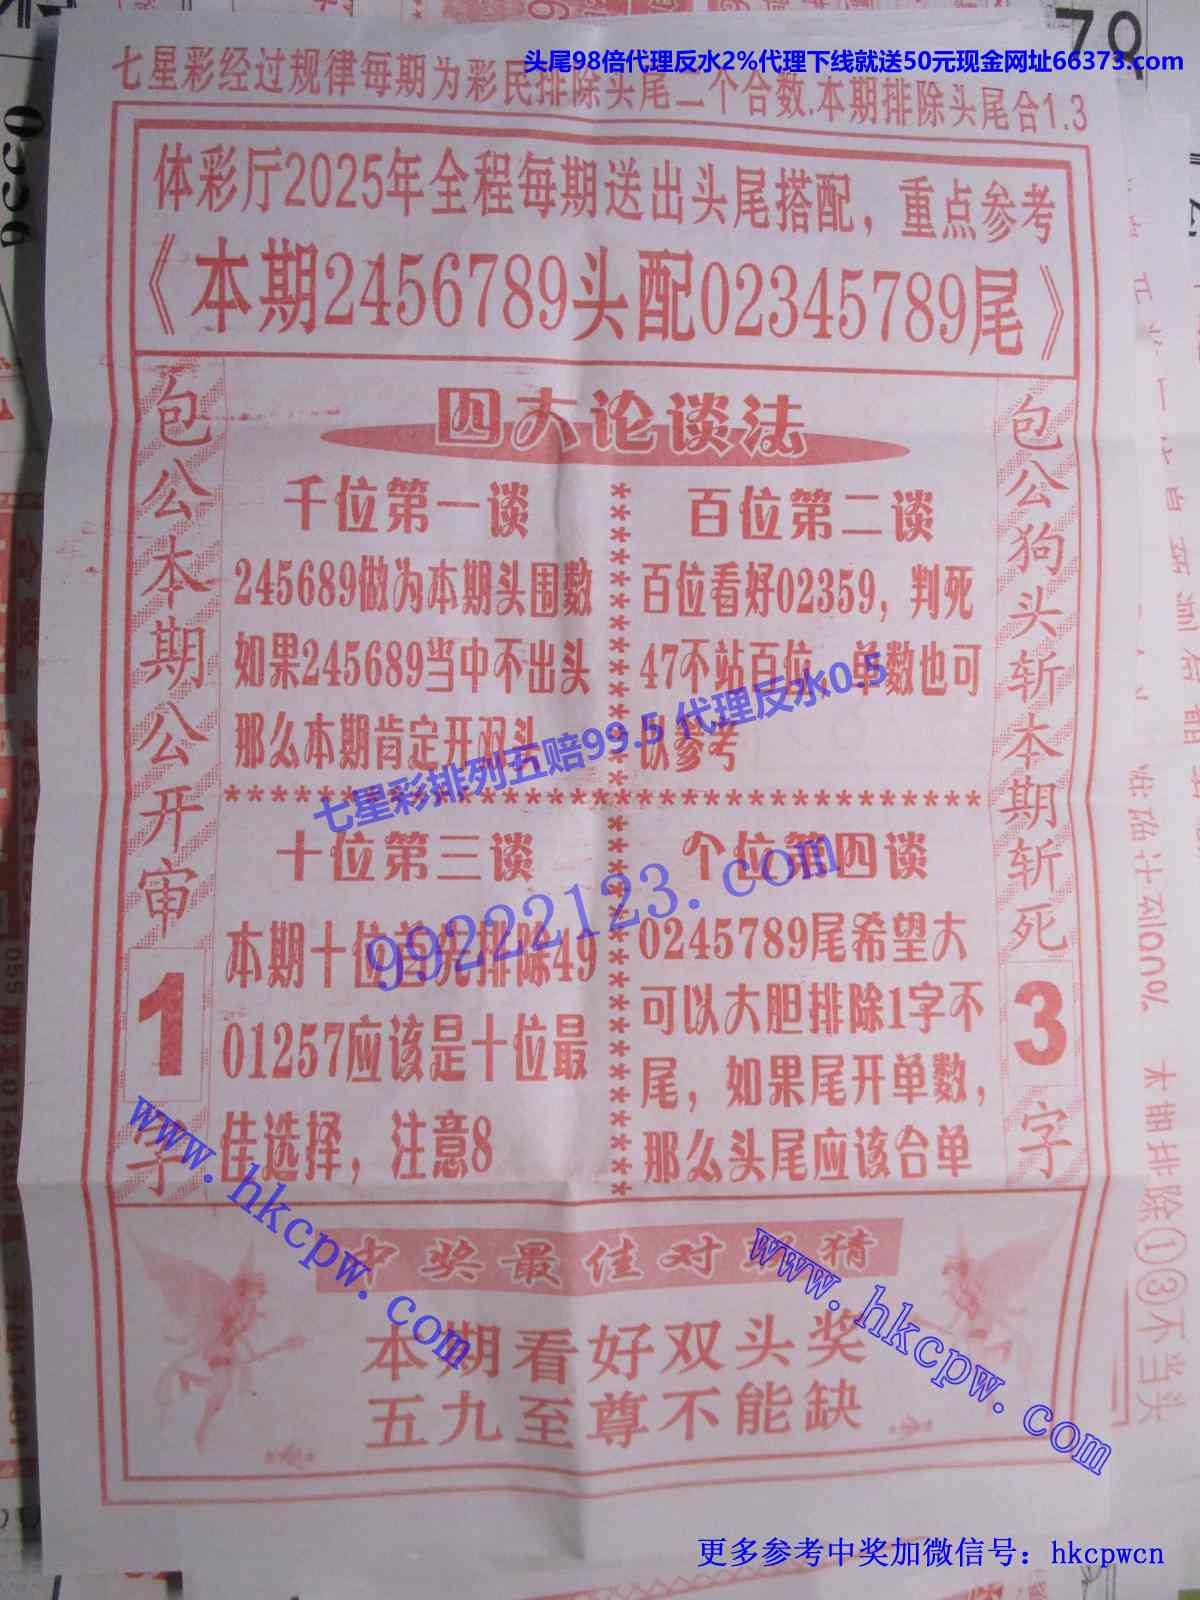 头尾98倍代理反水2%代理下线就送50元现金网址66373.com
七星彩经过规律每期为彩民排除头尾二个合数.本期排除头尾合1.3
体彩厅2025年全程每期送出头尾搭配，重点参考
《本期2456789头配02345789尾》
包公本期公开审
1
字
四大论谈法
千位第一谈
245689做为本期头围数
如果245689当中不出头
那么本期肯定开双头
百位第二谈
百位看好02359，判死
47不站百位，单数也可
以参考
七星彩排列五赔99.5 代理反水0.5
********************************
十位第三谈
本期十位首先排除49
01257应该是十位最
佳选择，注意8
个位第四谈
0245789尾希望大
可以大胆排除1字不
尾，如果尾开单数，
那么头尾应该合单
99222123.com
包公狗头斩本期斩死
3
字
www.hkcpw.com
www.hkcpw.com
中奖最佳对联猜
本期看好双头奖
五九至尊不能缺
本期排除①③不当头
更多参考中奖加微信号：hkcpwcn